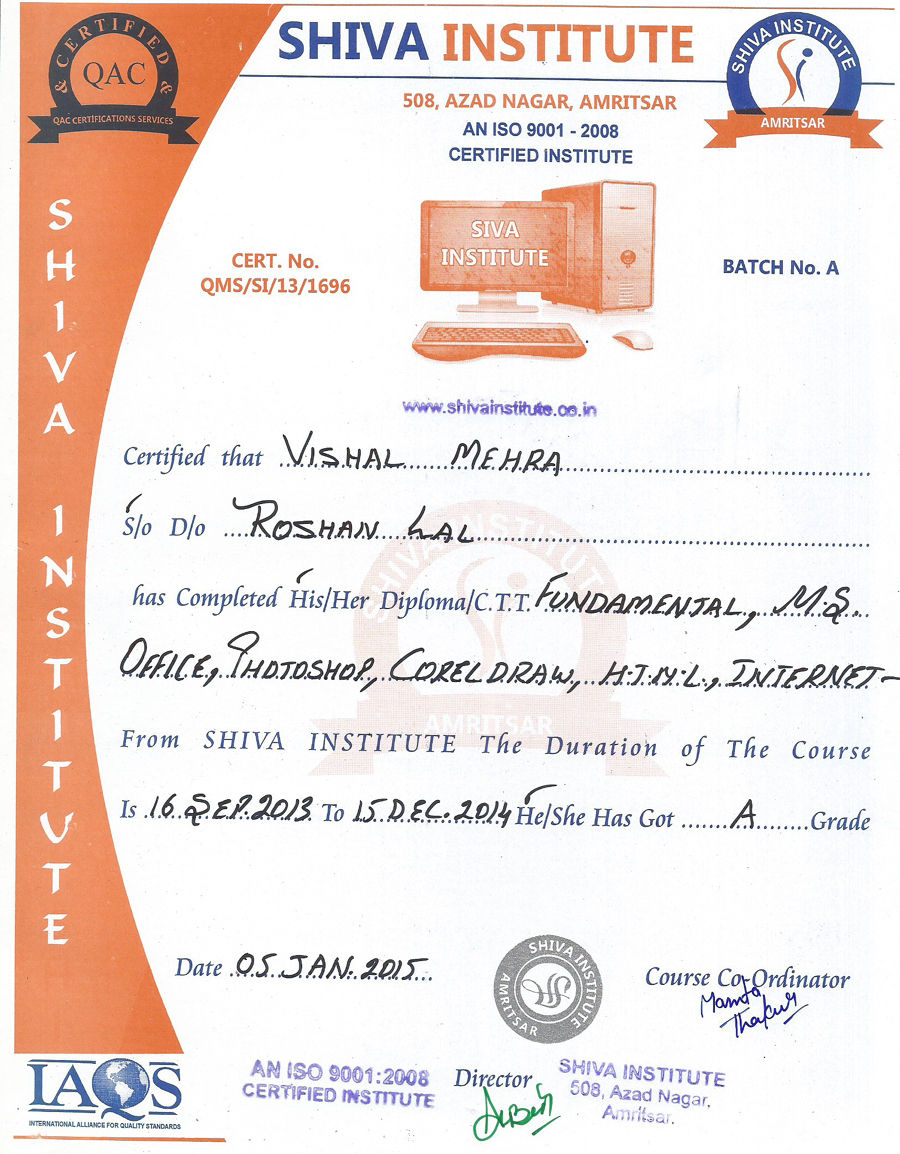 SHIVA INSTITUTE
CERTIFIED
& &
QAC
QAC CERTIFICATIONS SERVICES
SHIVA INSTITUTE
AMRITSAR
508, AZAD NAGAR, AMRITSAR
AN ISO 9001 - 2008
CERTIFIED INSTITUTE
SHIVA INSTITUTE
SIVA
INSTITUTE
CERT. No.
QMS/SI/13/1696
BATCH No. A
www.shivainstitute.co.in
Certified that VISHAL MEHRA
S/o D/o ROSHAN LAL
has Completed His/Her Diploma/C.T.T. FUNDAMENTAL, M.S.
OFFICE, PHOTOSHOP, CORELDRAW, H.T.M.L., INTERNET-
SHIVA INSTITUTE
AMRITSAR
From SHIVA INSTITUTE The Duration of The Course
Is 16 SEP.2013 To 15 DEC.2014 He/She Has Got A Grade
Date 05 JAN. 2015
SHIVA INSTITUTE
AMRITSAR
Course Co-Ordinator
Mamta
Thakur
IAQS
INTERNATIONAL ALLIANCE FOR QUALITY STANDARDS
AN ISO 9001:2008
CERTIFIED INSTITUTE
Director
SHIVA INSTITUTE
508, Azad Nagar,
Amritsar.